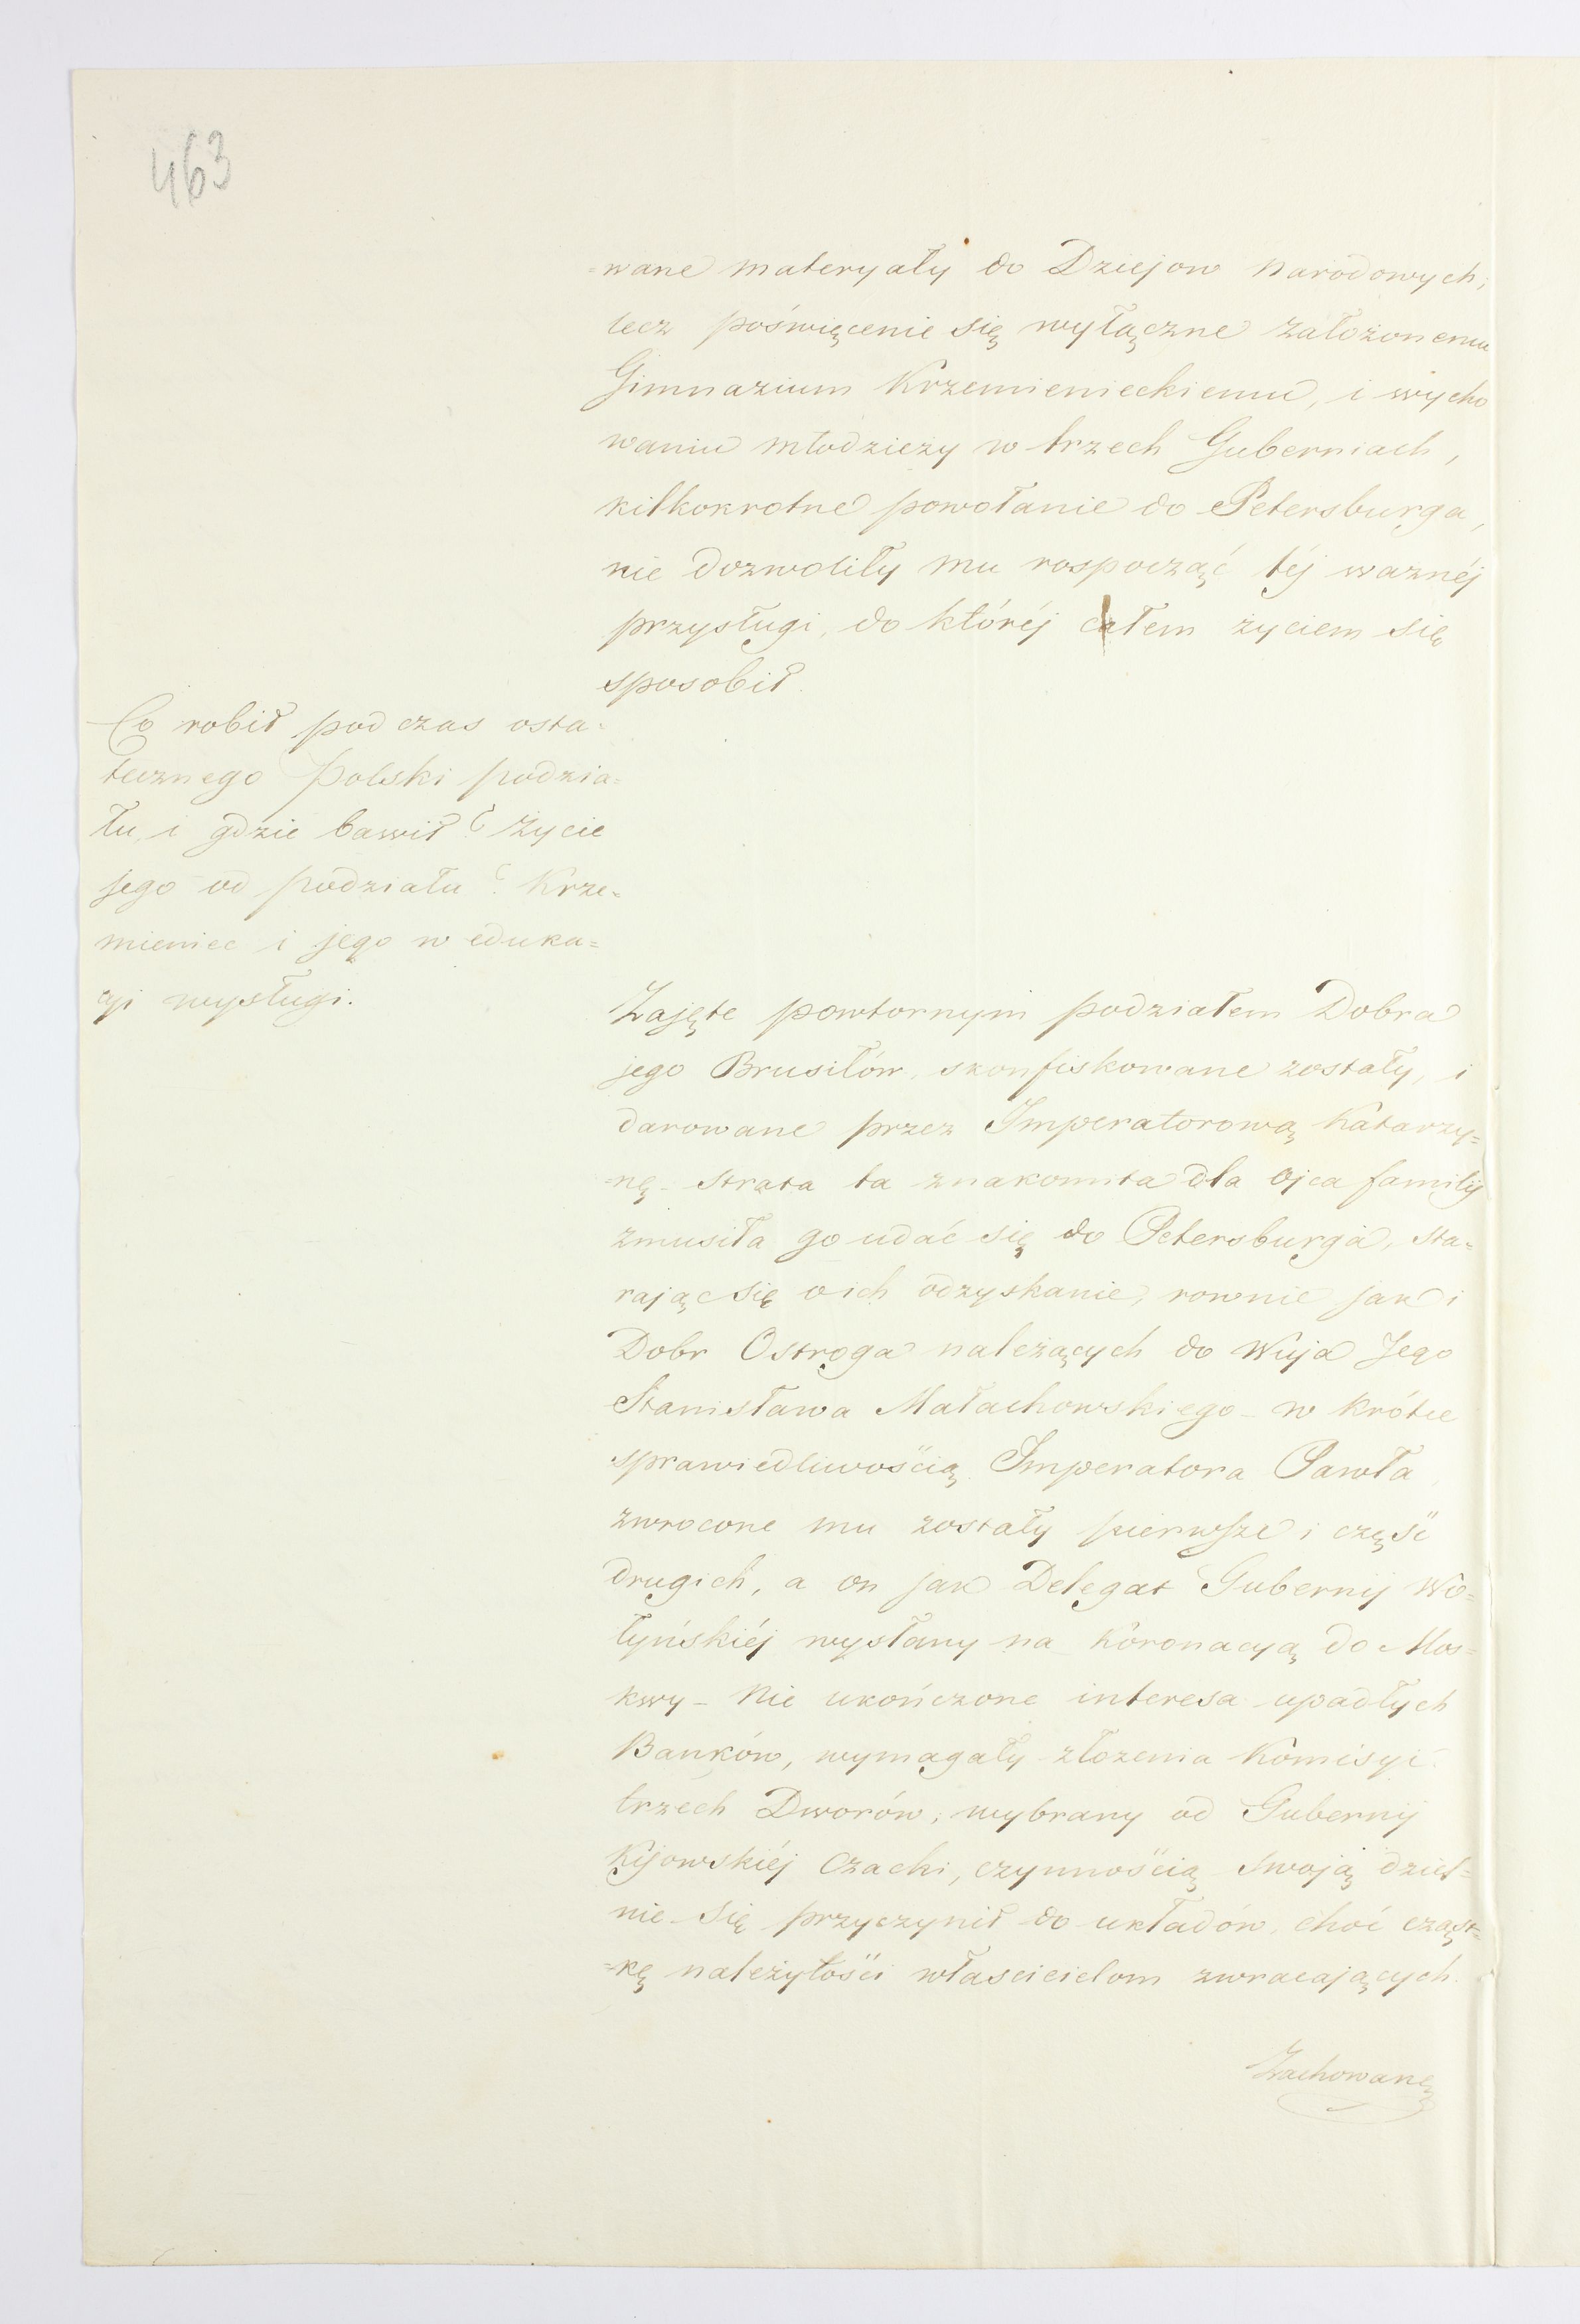 463
=wane materyały do Dziejow Narodowych;
lecz poświęcenie się wyłączne założonemu
Gimnazium Krzemienieckiemu, i wycho
waniu młodzieży w trzech Guberniach,
kilkokrotne powołanie do Petersburga,
nie dozwoliły mu rospocząć téj ważnéj
przysługi, do któréj całem życiem się
sposobił.
Co robił podczas osta=
tecznego Polski podzia=
łu, i gdzie bawił? Życie
jego od podziału? Krze=
mieniec i jego w eduka=
cji wysługi.
Zajęte powtornym podziałem Dobra
jego Brusiłów, skonfiskowane zostały, i
darowane przez Imperatorową Katarzy=
nę - strata ta znakomita dla ojca familij
zmusiła go udać się do Petersburga, sta=
rając się o ich odzyskanie, rownie jak i
Dobr Ostroga należących do Wuja Jego
Stanisława Małachowskiego - w krótce
sprawiedliwością Imperatora Pawła,
zwrocone mu zostały pierwsze i część
drugich, a on jak Delegat Gubernij Wo=
łyńskiéj wysłany na Koronacyą do Mos=
kwy - Nie ukończone interesa upadłych
Banków, wymagały złożenia Komisyi
trzech Dworów, wybrany od Gubernij
Kijowskiéj Czacki, czynnością swoją dziel=
nie się przyczynił do układów, choć cząst=
=kę należytości właścicielom zwracających.
Zachowane